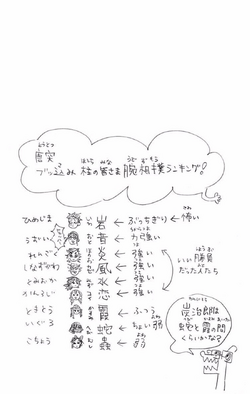 とうとつ
唐突
ブッ込み 柱の皆さま 腕相撲ランキング!
はしら みな うでずもう
ひめじま 岩 ← ぶっちぎり ← 怖い
いわ こわ
うずい 音 ← 力強い
おと ちからづよ
れんごく 炎 ← 強い
しなずがわ 風 ← 強い
とみおか 水 ← 強い
かんろじ 恋 ← 強い
ときとう 霞 ← ふつう
いぐろ 蛇 ← ちょい弱
こちょう 蟲 ← 弱
いい勝負
だった人たち
しょうぶ
炭治郎は
蛇と霞の間
くらいかな?